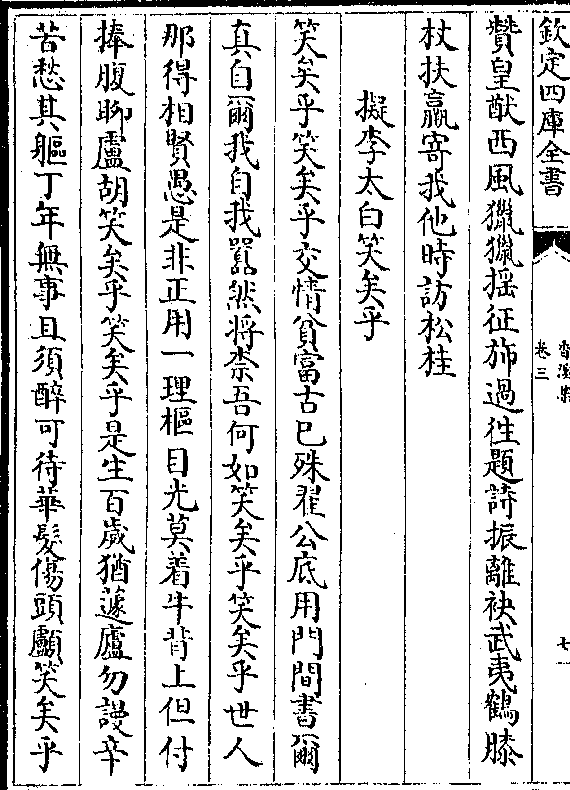 欽定四庫全書
香溪集
卷三
七
贊皇猷西風獵獵揺征斾過徃題詩振離袂武夷鶴膝
杖扶羸寄我他時訪松桂
擬李太白笑矣乎
笑矣乎笑矣乎交情貧富古已殊翟公底用門間書爾
真自爾我自我嚣然將柰吾何如笑矣乎笑矣乎世人
那得相賢愚是非正用一理樞目光莫着牛背上但付
捧腹聊盧胡笑矣乎笑矣乎是生百歲猶蘧廬勿謾辛
苦愁其軀丁年無事且須醉可待華髪傷頭顱笑矣乎